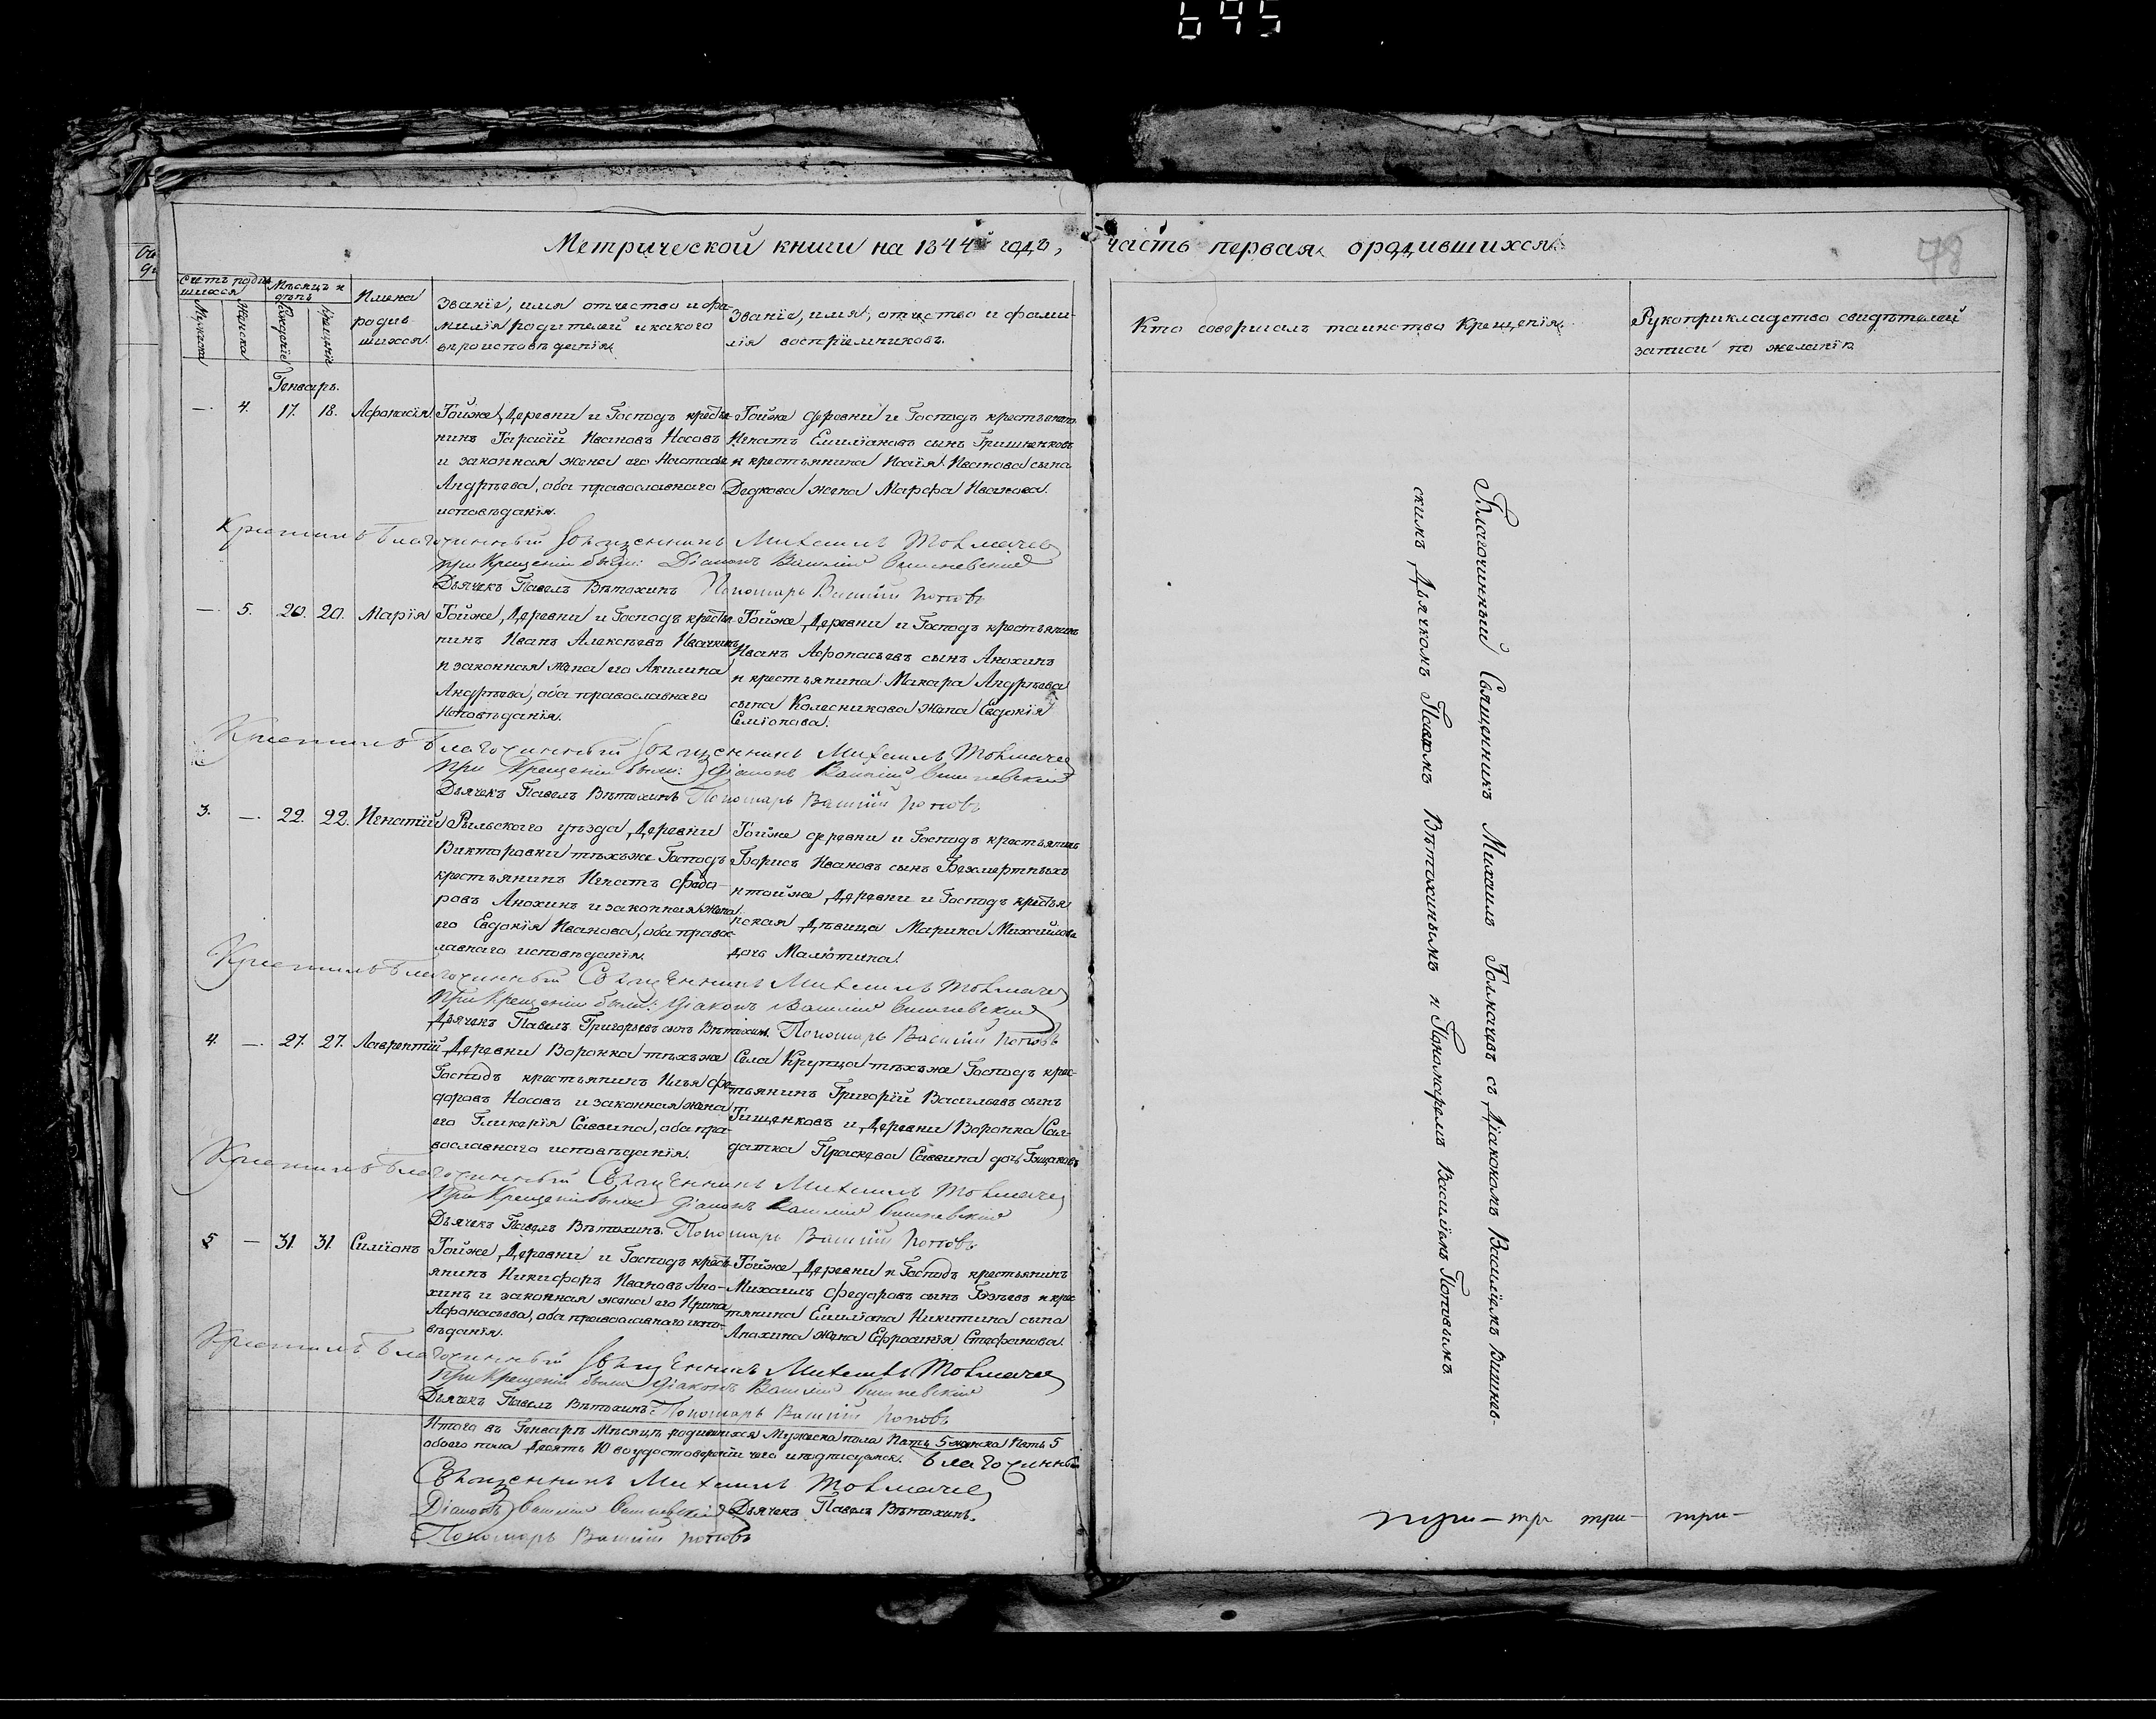 695
Метрической книги на 1844й годъ, часть первая ородившихся.
78
Счетъ родив
шихся
Мѣсяцъ и
день
Мужска
Женска
Рожденiе
Крещенiе
Имена
родив
шихся.
Званiе, имя отчество и фа-
милiя родителей и какого
вѣроисповѣданiя
Званiе, имя, отчество и фами-
лiя воспрiемниковъ.
Кто совершалъ таинство Крещенiя.
Рукоприкладство свидѣтелей
записи по желанiю.
Генваръ.
—. 4. 17. 18. Афанасiя
Тойже Деревни и Господъ кресть-
нинъ Гарасiй Ивановъ Носовъ
и законная жена его Настасья
Андрѣева, оба православнаго
исповѣданiя.
Тойже деревни и Господъ крестьянинъ
Игнатъ Емилiановъ сынъ Гришненковъ
и крестьянина Исаiя Иванова сына
Дедкова жена Марфа Иванова.
Крестилъ Благочинный Священникъ Михаилъ Толмачев
при Крещенiи были: Дiаконъ Василiй Вишневскiй
Дьячекъ Павелъ Вѣтохинъ Пономарь Василiй Поповъ
—. 5. 20. 20. Марiя
Тойже, Деревни и Господъ кресть-
нинъ Иванъ Алексѣевъ
и законная жена его Акилина
Андрѣева, оба православнаго
исповѣданiя.
Тойже, Деревни и Господъ крестьянинъ
Иванъ Афонасьевъ сынъ Анохинъ
и крестьянина Макара Андрѣева
сына Колесникова Жена Евдокiя
Семiонова.
Крестилъ Благочинный Священникъ Михаилъ Толмачев
при Крещенiи были: Дiаконъ Василiй Вишневскiй
Дьячекъ Павелъ Вѣтохинъ Пономарь Василiй Поповъ
3. —. 22. 22. Игнатiй
Рыльского уѣзда, Деревни
Викторовки тѣхъже Господъ
крестьянинъ Игнатъ Федо-
ровъ Анохинъ и законная жена
его Евдокiя Иванова, оба правос-
лавнаго исповѣданiя.
Тойже деревни и Господъ крестьянинъ
Борисъ Ивановъ сынъ Безмертныхъ
и тойже, Деревни и Господъ крестья
нская Дѣвица Марина Михайлова
дочь Малютина.
Крестилъ Благочинный Священникъ Михаилъ Толмачев
При Крещенiи были: Дiаконъ Василiй Вишневскiй
Дьячекъ Павелъ Григорьевъ сынъ Вѣтохин. Пономарь Василiй Поповъ
4. —. 27. 27. Лаврентiй
Деревни Воронка тѣхъже
Господъ крестьянинъ Илья Фе-
доровъ Носовъ и законная жена
его Гликерiя Саввина, оба пра-
вославнаго исповѣданiя.
Села Крупца тѣхъже Господъ крес-
тьянинъ Григорiй Васильевъ сынъ
Тищенковъ и, Деревни Воронка Сол-
датка Праскева Саввина дочь
Крестилъ Благочинный Священникъ Михаилъ Толмачев
При Крещенiи были Дiаконъ Василiй Вишневскiй
Дьячекъ Павелъ Вѣтохинъ. Пономарь Василiй Поповъ
5 — 31. 31. Симiонъ
Тойже, Деревни и Господъ кресть-
янинъ Никифоръ Ивановъ Ано-
хинъ и законная жена его Ирина
Афанасьева, оба православнаго испо-
вѣданiя.
Тойже, Деревни и Господъ крестьянинъ
Михаилъ Федоровъ сынъ и крес
тянина Емилiана Никитина сына
Анохина жена Ефросинiя Стефанова.
Крестилъ Благочинный Священникъ Михаилъ Толмачев
При Крещенiи были Дiаконъ Василiй Вишневскiй
Дьячекъ Павелъ Вѣтохинъ. Пономарь Василiй Поповъ
Итого въ Генварѣ Мѣсяцѣ родившихся Мужеска пола Пять 5 женска Пять 5
обоего пола Десять 10 во удостоверенiи чего и подписуемся. Благочинный
Священникъ Михаилъ Толмачев
Дiаконъ Василiй Вишневскiй Дьячекъ Павелъ Вѣтохинъ.
Пономарь Василiй Поповъ
Благочинный Священникъ Михаилъ Толмачевъ съ Дiакономъ Василiемъ Вишнев-
скимъ, Дьячкомъ Павломъ Вѣтохинымъ и Пономаремъ Василiемъ Поповымъ.
три— тр три— три—